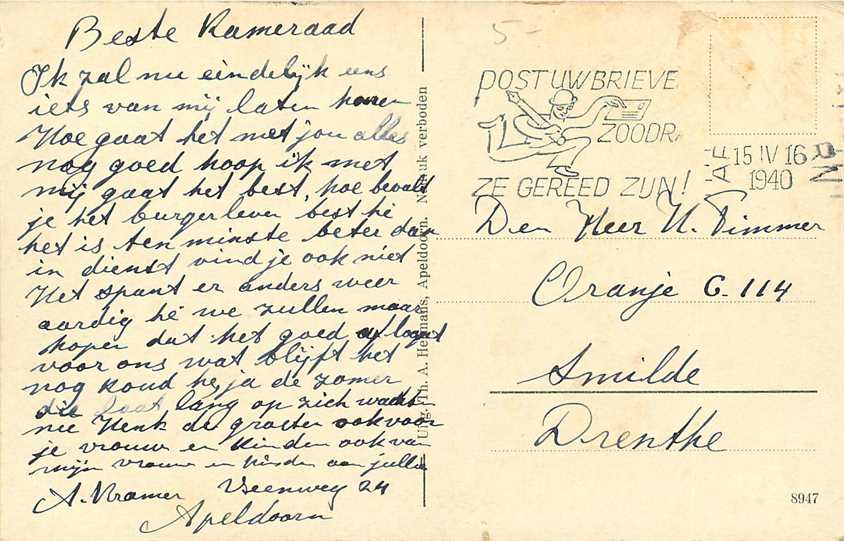 Beste Kameraad
Ik zal nu eindelijk eens
iets van mij laten horen
Hoe gaat het met jou alles
nog goed hoop ik met
mij gaat het best, hoe bevalt
je het burgerleven best hè
het is ten minste beter dan
in dienst vind je ook niet
Het spant er anders weer
aardig hè we zullen maar
hopen dat het goed afloopt
voor ons wat blijft het
nog koud hè, ja de zomer
die laat lang op zich wachte
nu Henk de groeten ook voor
je vrouw en kinderen ook va
mijn vrouw en kinder aan jullie
A. Kramer Veenweg 24
Apeldoorn
Uitg. Th. A. Hermans, Apeldoorn. Nadruk verboden
5-
POST UW BRIEVE
ZOODR
ZE GEREED ZIJN!
15 IV 16
1940
Den Heer H. Timmer
Oranje G. 114
Smilde
Drenthe
8947